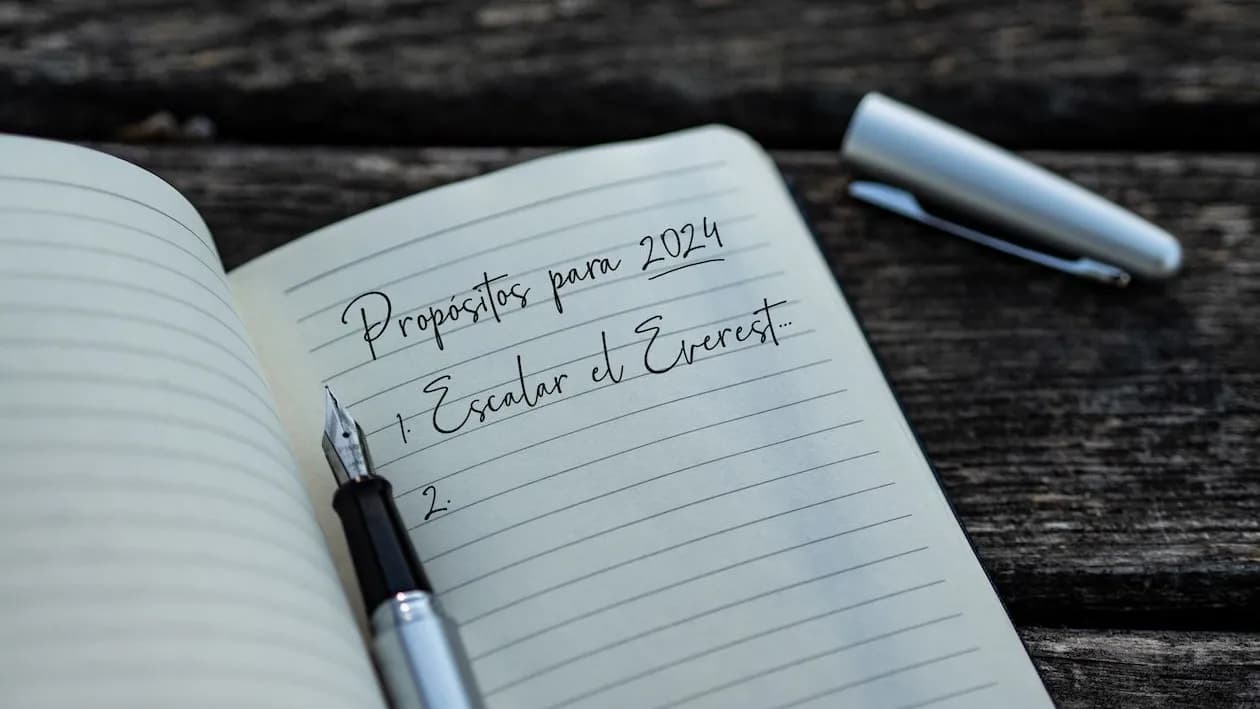 Propósitos para 2024
1. Escalar el Everest...
2.